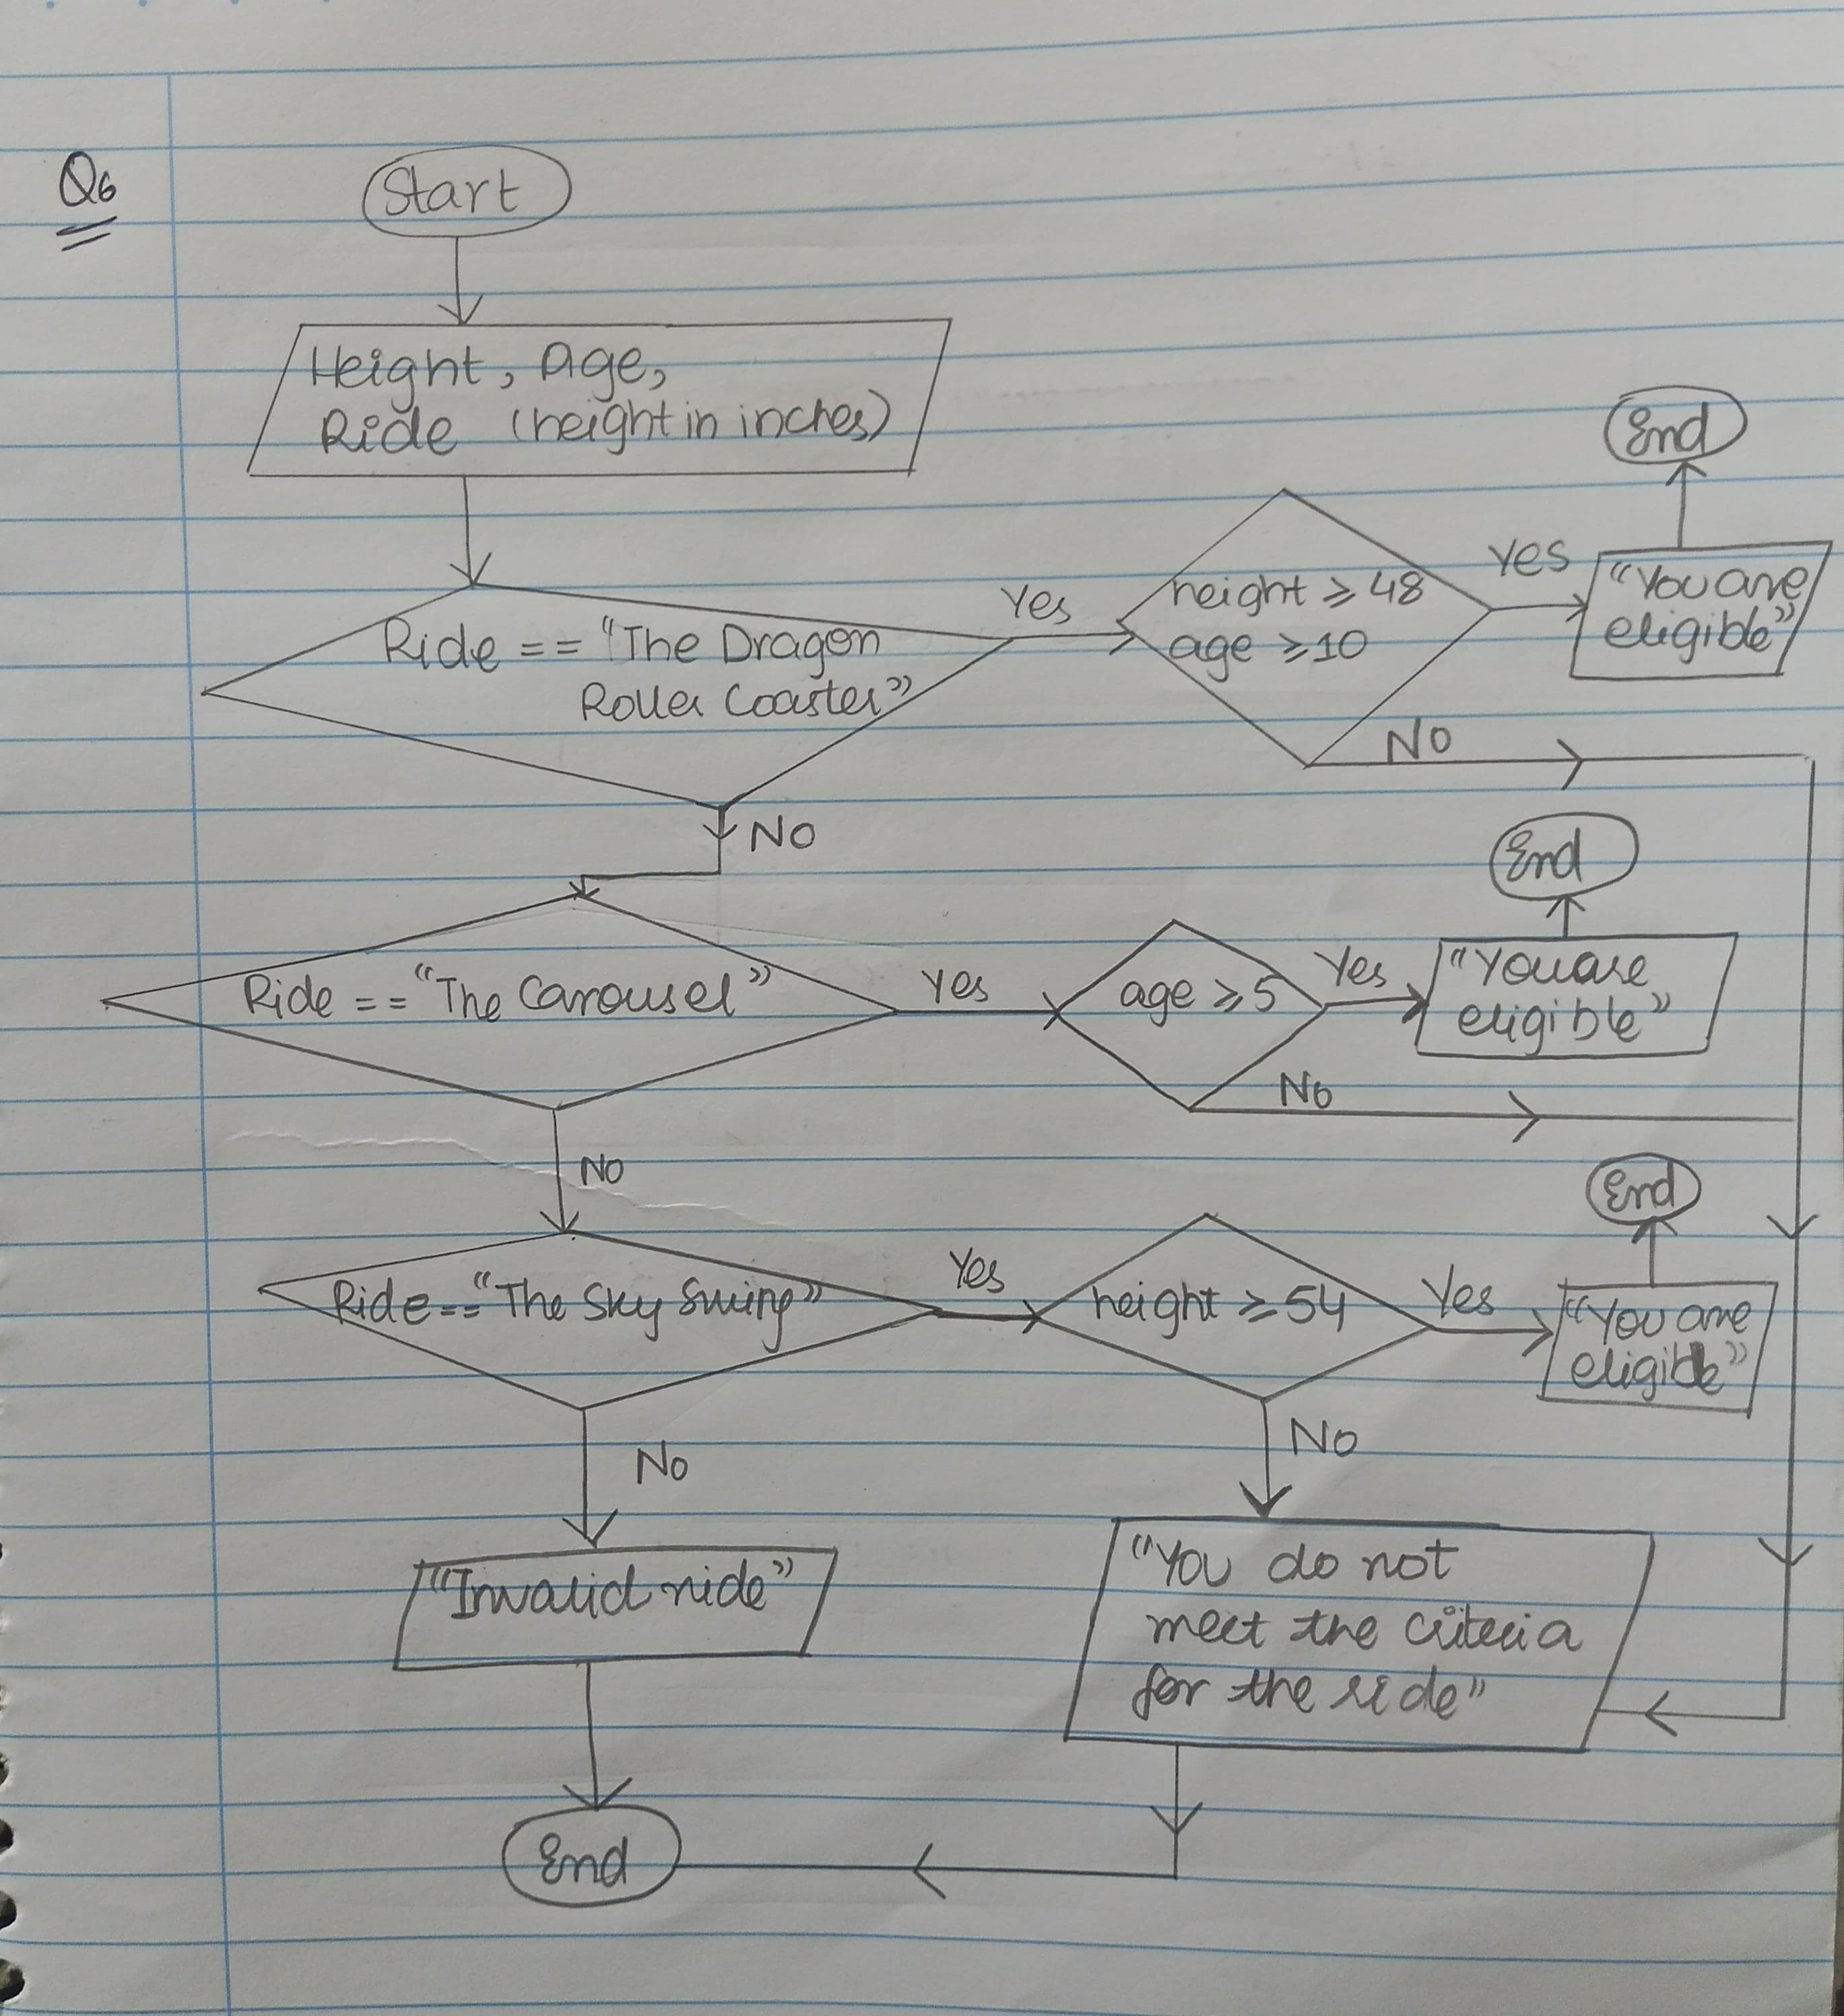 Q6
Start
Height, Age,
Ride (height in inches)
End
Ride == "The Dragon
Roller Coaster"
Yes
height ≥ 48
age ≥ 10
Yes
"You are
eligible"
NO
NO
End
Ride == "The Carousel"
Yes
age ≥ 5
Yes
"You are
eligible"
No
NO
End
Ride == "The Sky Swing"
Yes
height ≥ 54
Yes
"You are
eligible"
No
No
"Invalid ride"
"You do not
meet the criteria
for the ride"
End